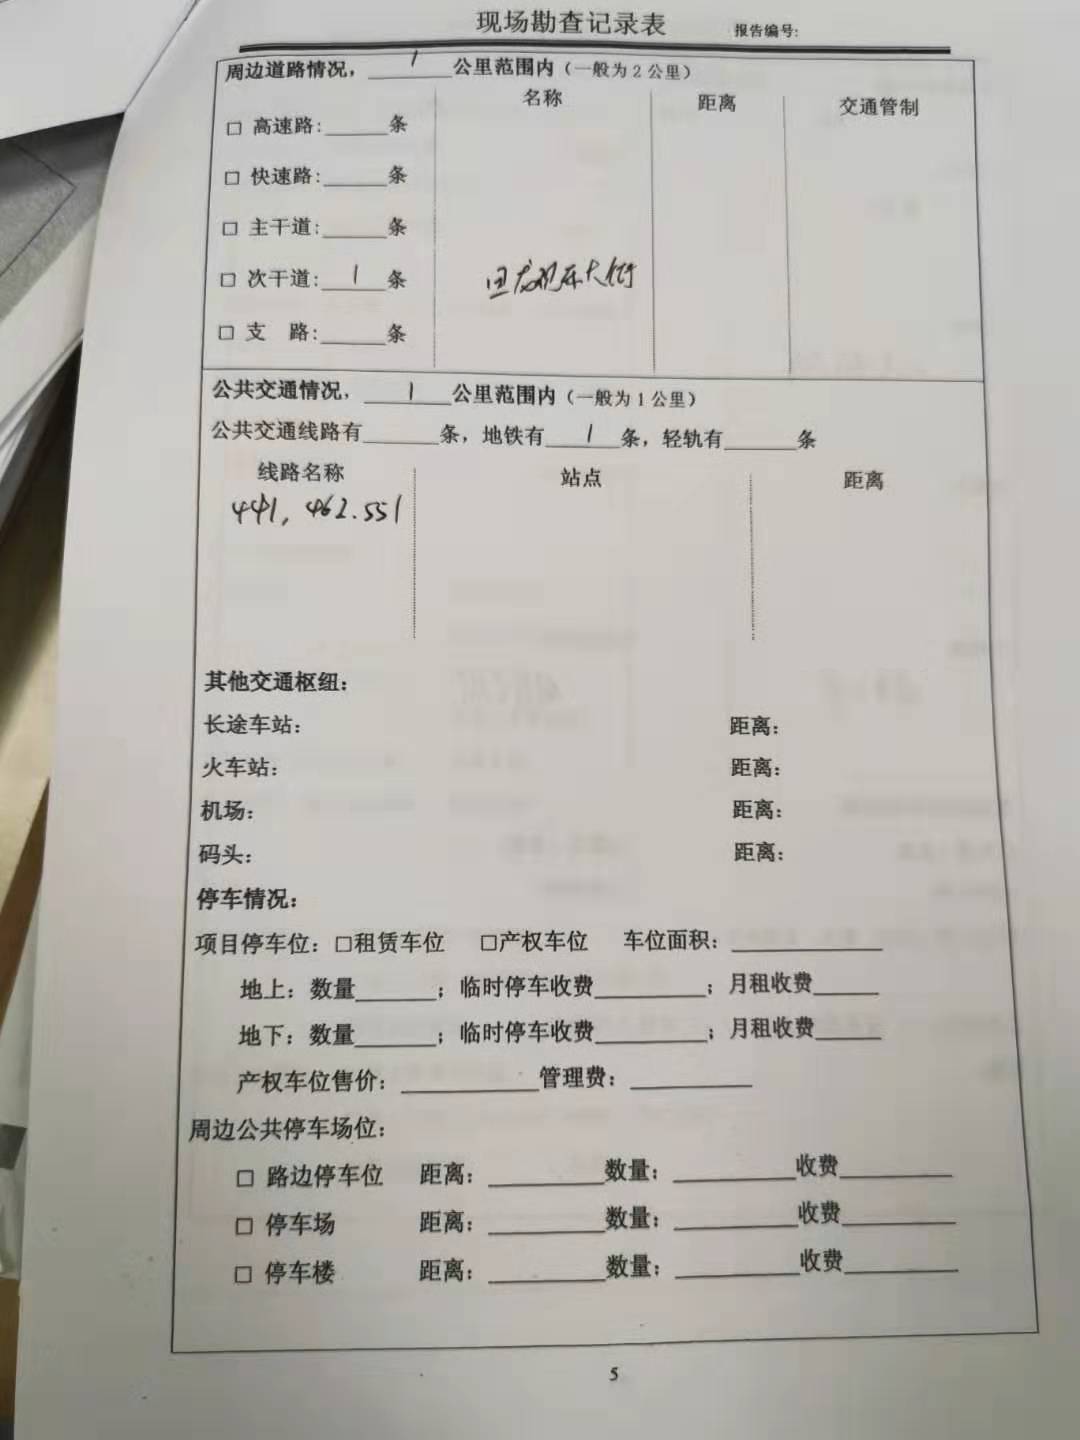 现场勘查记录表 报告编号:
周边道路情况，__1__公里范围内（一般为2公里）
名称 距离 交通管制
□ 高速路:____条
□ 快速路:____条
□ 主干道:____条
□ 次干道:__1__条 大街
□ 支 路:____条
公共交通情况，__1__公里范围内（一般为1公里）
公共交通线路有____条，地铁有__1__条，轻轨有____条
线路名称 站点 距离
441, 462.551
其他交通枢纽：
长途车站： 距离：
火车站： 距离：
机场： 距离：
码头： 距离：
停车情况：
项目停车位：□租赁车位 □产权车位 车位面积：________
地上：数量____；临时停车收费______；月租收费____
地下：数量____；临时停车收费______；月租收费____
产权车位售价：________管理费：______
周边公共停车场位：
□ 路边停车位 距离：______数量：______收费______
□ 停车场 距离：______数量：______收费______
□ 停车楼 距离：______数量：______收费______
5